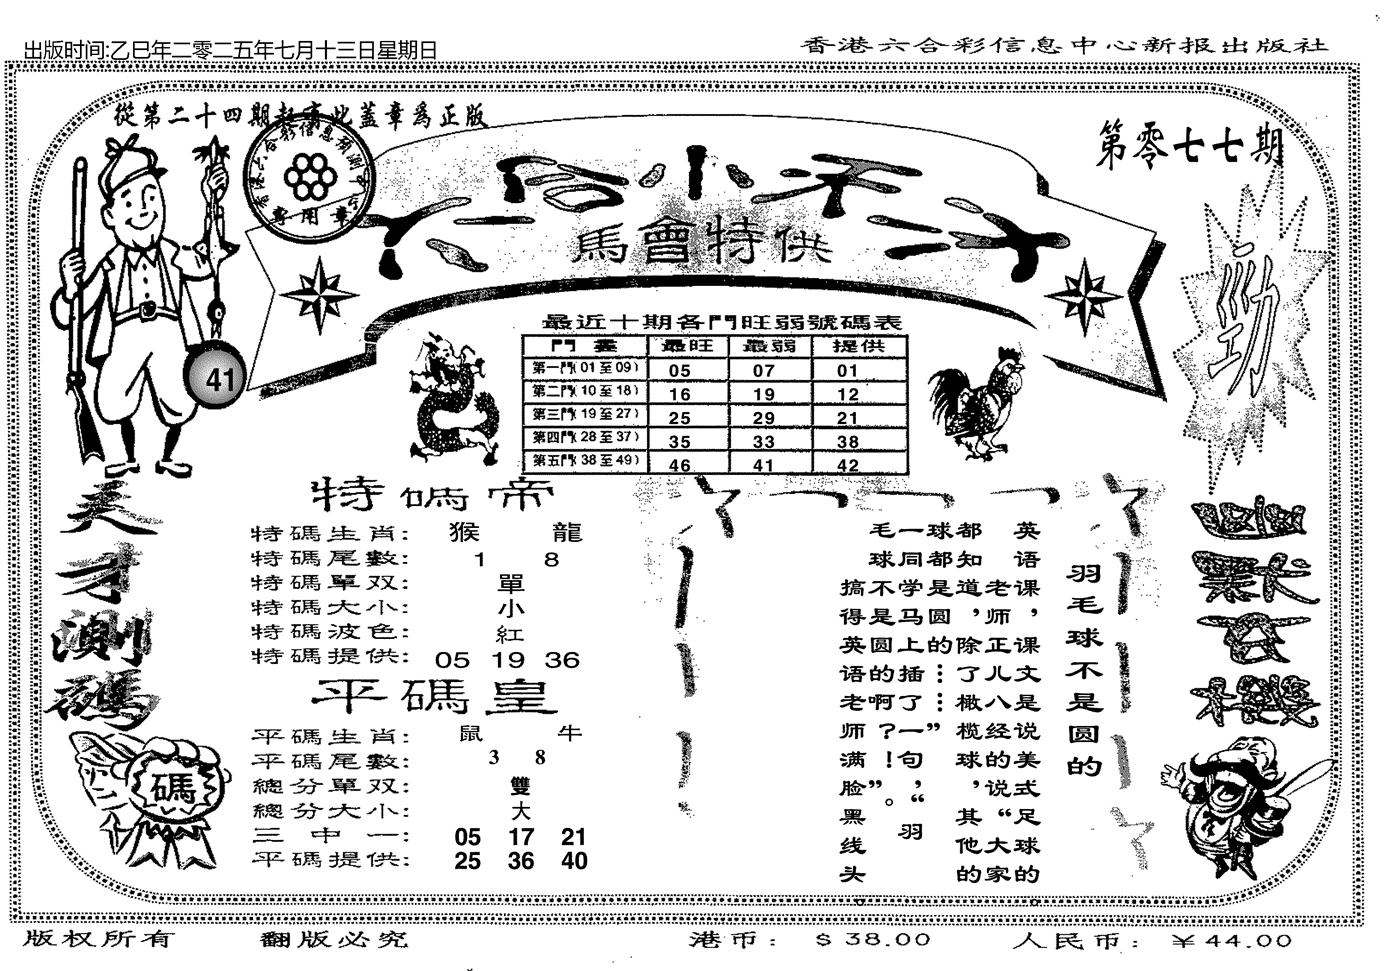 出版时间:乙巳年二零二五年七月十三日星期日
香港六合彩信息中心新报出版社
從第二十四期起有此蓋章爲正版
第零七七期
專用章
六合小不大
馬會特供
41
最近十期各門旺弱號碼表
門 最旺 最弱 提供
第一門(01至09) 05 07 01
第二門(10至18) 16 19 12
第三門(19至27) 25 29 21
第四門(28至37) 35 33 38
第五門(38至49) 46 41 42
特碼帝
特碼生肖: 猴 龍
特碼尾數: 1 8
特碼單双: 單
特碼大小: 小
特碼波色: 紅
特碼提供: 05 19 36
平碼皇
平碼生肖: 鼠 牛
平碼尾數: 3 8
總分單双: 雙
總分大小: 大
三中一: 05 17 21
平碼提供: 25 36 40
天才測碼
碼
羽毛球不是圆的
英语老师正儿八经的说“大家
都知道,除了橄榄球,其他的
球都是圆的……”
一同学马上插了一句,“羽
毛球不是圆的啊?!”。
搞得英语老师满脸黑线
英语课,课文是说美式足球的
头
勁
版权所有
翻版必究
港币: $38.00
人民币: ¥44.00